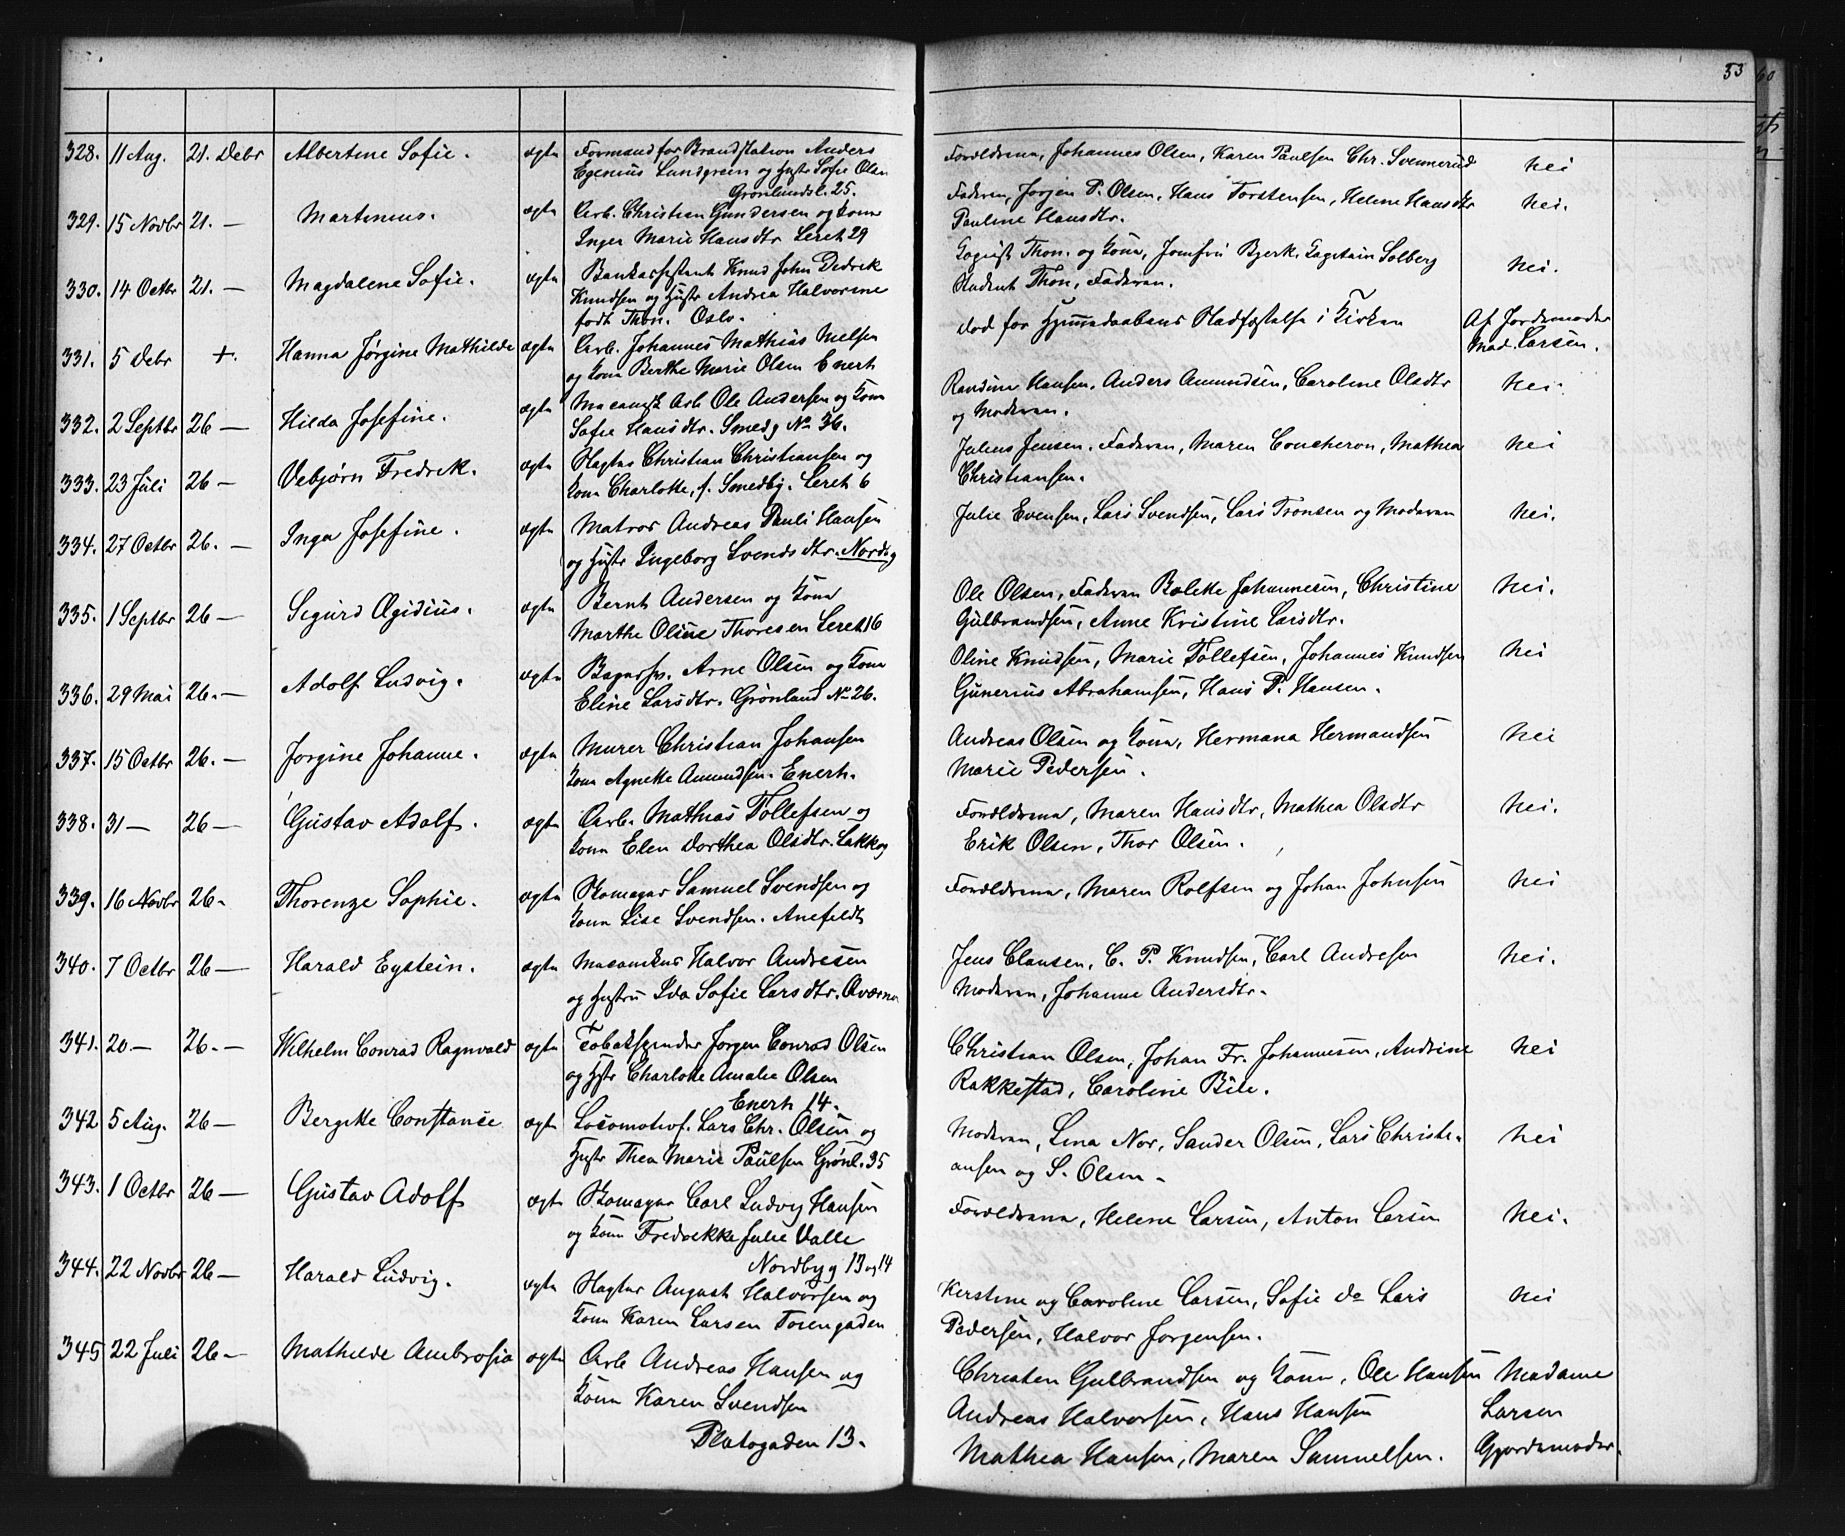 53
328. 11 Aug. 21. Debr Albertine Sofie. ægte Formand for Brandstation Anders
Egenius Lundgreen og Hustr Sofie Olsen
Grønlandsl. 25.
Forældrene, Johannes Olsen, Karen Paulsen Chr. Svennerud nei
329. 15 Novbr 21. — Martinius. ægte Arb. Christian Gundersen og Kone
Inger Marie Hansdtr Leret 29
Faderen, Jørgen P. Olsen, Hans Torstensen, Helene Hansdtr nei.
Pauline Hansdtr.
330. 14 Octbr 21. — Magdalene Sofie. ægte Bankassistent Knud John Dedrek
Knudsen og Hustr Andrea Halvorine
født Thon. Oslo.
Thon. og Kone, Jomfru Bjerk. Capitain Solberg nei.
Student Thon, Faderen.
331. 5 Debr +. Hanna Jørgine Mathilde ægte Arb. Johannes Mathias Nielsen
og Kone Berthe Marie Olsen Enerh
død før Hjemmedaabens Stadfæstelse i Kirken Af Jordemoder
Mad. Larsen.
332. 2 Septbr 26 — Hilda Josefine. ægte Mecanisk Arb Ole Andersen og Kone
Sofie Hansdtr. Smedg No 36.
Randine Hansen, Anders Amundsen, Caroline Olsdtr nei.
og Moderen.
333. 23 Juli 26 — Vebjørn Fredrek. ægte Slagter Christian Christiansen og
Kone Charlotte, f. Smedby. Leret 6
Julius Jensen. Faderen, Maren Coucheron, Mathea nei
Christiansen.
334. 27 Octbr 26. — Inga Josefine. ægte Matros Andreas Pauli Hansen
og Hustr Ingeborg Svendsdtr. Nordbg
Julie Evensen, Lars Svendsen, Lars Tronsen og Moderen nei.
335. 1 Septbr 26 — Sigurd Ægidius. ægte Bernt Andersen og Kone
Marthe Oline Thoresen Leret 16
Ole Olsen, Faderen Bolette Johannesen, Christine nei.
Gulbrandsen, Anne Kristine Larsdtr.
336. 29 Mai 26. — Adolf Ludvig. ægte Bagersv. Arne Olsen og Kone
Eline Larsdtr. Grønland No 26.
Oline Knudsen, Marie Tollefsen, Johannes Knudsen nei
Gunerius Abrahamsen, Hans P. Hansen.
337. 15 Octbr 26. — Jørgine Johanne. ægte Murer Christian Johansen
Kone Agnethe Amundsen. Enerh.
Andreas Olsen og Kone, Hermana Hermandsen nei
Marie Pedersen.
338. 31 — 26 — Gustav Adolf. ægte Arb. Mathias Tollefsen og
Kone Elen Dorthea Olsdtr. Lakkeg
Forældrene, Maren Hansdtr, Mathea Olsdtr nei.
Erik Olsen, Thor Olsen.
339. 16 Novbr 26. Thorenze Sophie. ægte Skomager Samuel Svendsen og
Kone Lise Svendsen. Anefeldt
Forældrene, Maren Rolfsen og Johan Johnsen nei
340. 7 Octbr 26 — Harald Eystein. ægte Mecanikus Halvor Andresen
og Hustru Ida Sofie Larsdtr. Qværne
Jens Clausen, C. P. Knudsen, Carl Andresen nei.
Moderen, Johanne Andersdtr.
341. 20 — 26. — Wilhelm Conrad Ragnvald ægte Tobakspinder Jørgen Conrad Olsen
og Hstr Charlotte Amalie Olsen
Enerh 14.
Christian Olsen, Johan Fr. Johannesen, Andrine nei
Rakkestad, Caroline Bile.
342 5 Aug. 26 — Bergitte Constanse ægte Locomotivf. Lars Chr. Olsen og
Hustr Thea Marie Paulsen Grønl. 35
Moderen, Lina Nor, Sander Olsen, Lars Christi- nei
ansen og S. Olsen.
343. 1 Octbr 26 — Gustav Adolf ægte Skomager Carl Ludvig Hansen
og Kone Fredrekke Julie Valle
Nordbyg 13 og 14
Forældrene, Helene Larsen, Anton Larsen nei.
344. 22 Novbr 26 — Harald Ludvig. ægte Slagter August Halvorsen og
Kone Karen Larsen Torengaden
Kerstine og Caroline Larsen, Sofie do Lars nei
Pedersen, Halvor Jørgensen.
345 22 Juli 26 — Mathilde Ambrosia ægte Arb Andreas Hansen og
Kone Karen Svendsen
Platogaden 13.
Christen Gulbrandsen og Kone, Ole Hansen Madame
Andreas Halvorsen, Hans Hansen Larsen
Mathea Hansen, Maren Samuelsen. Gjordemoder.